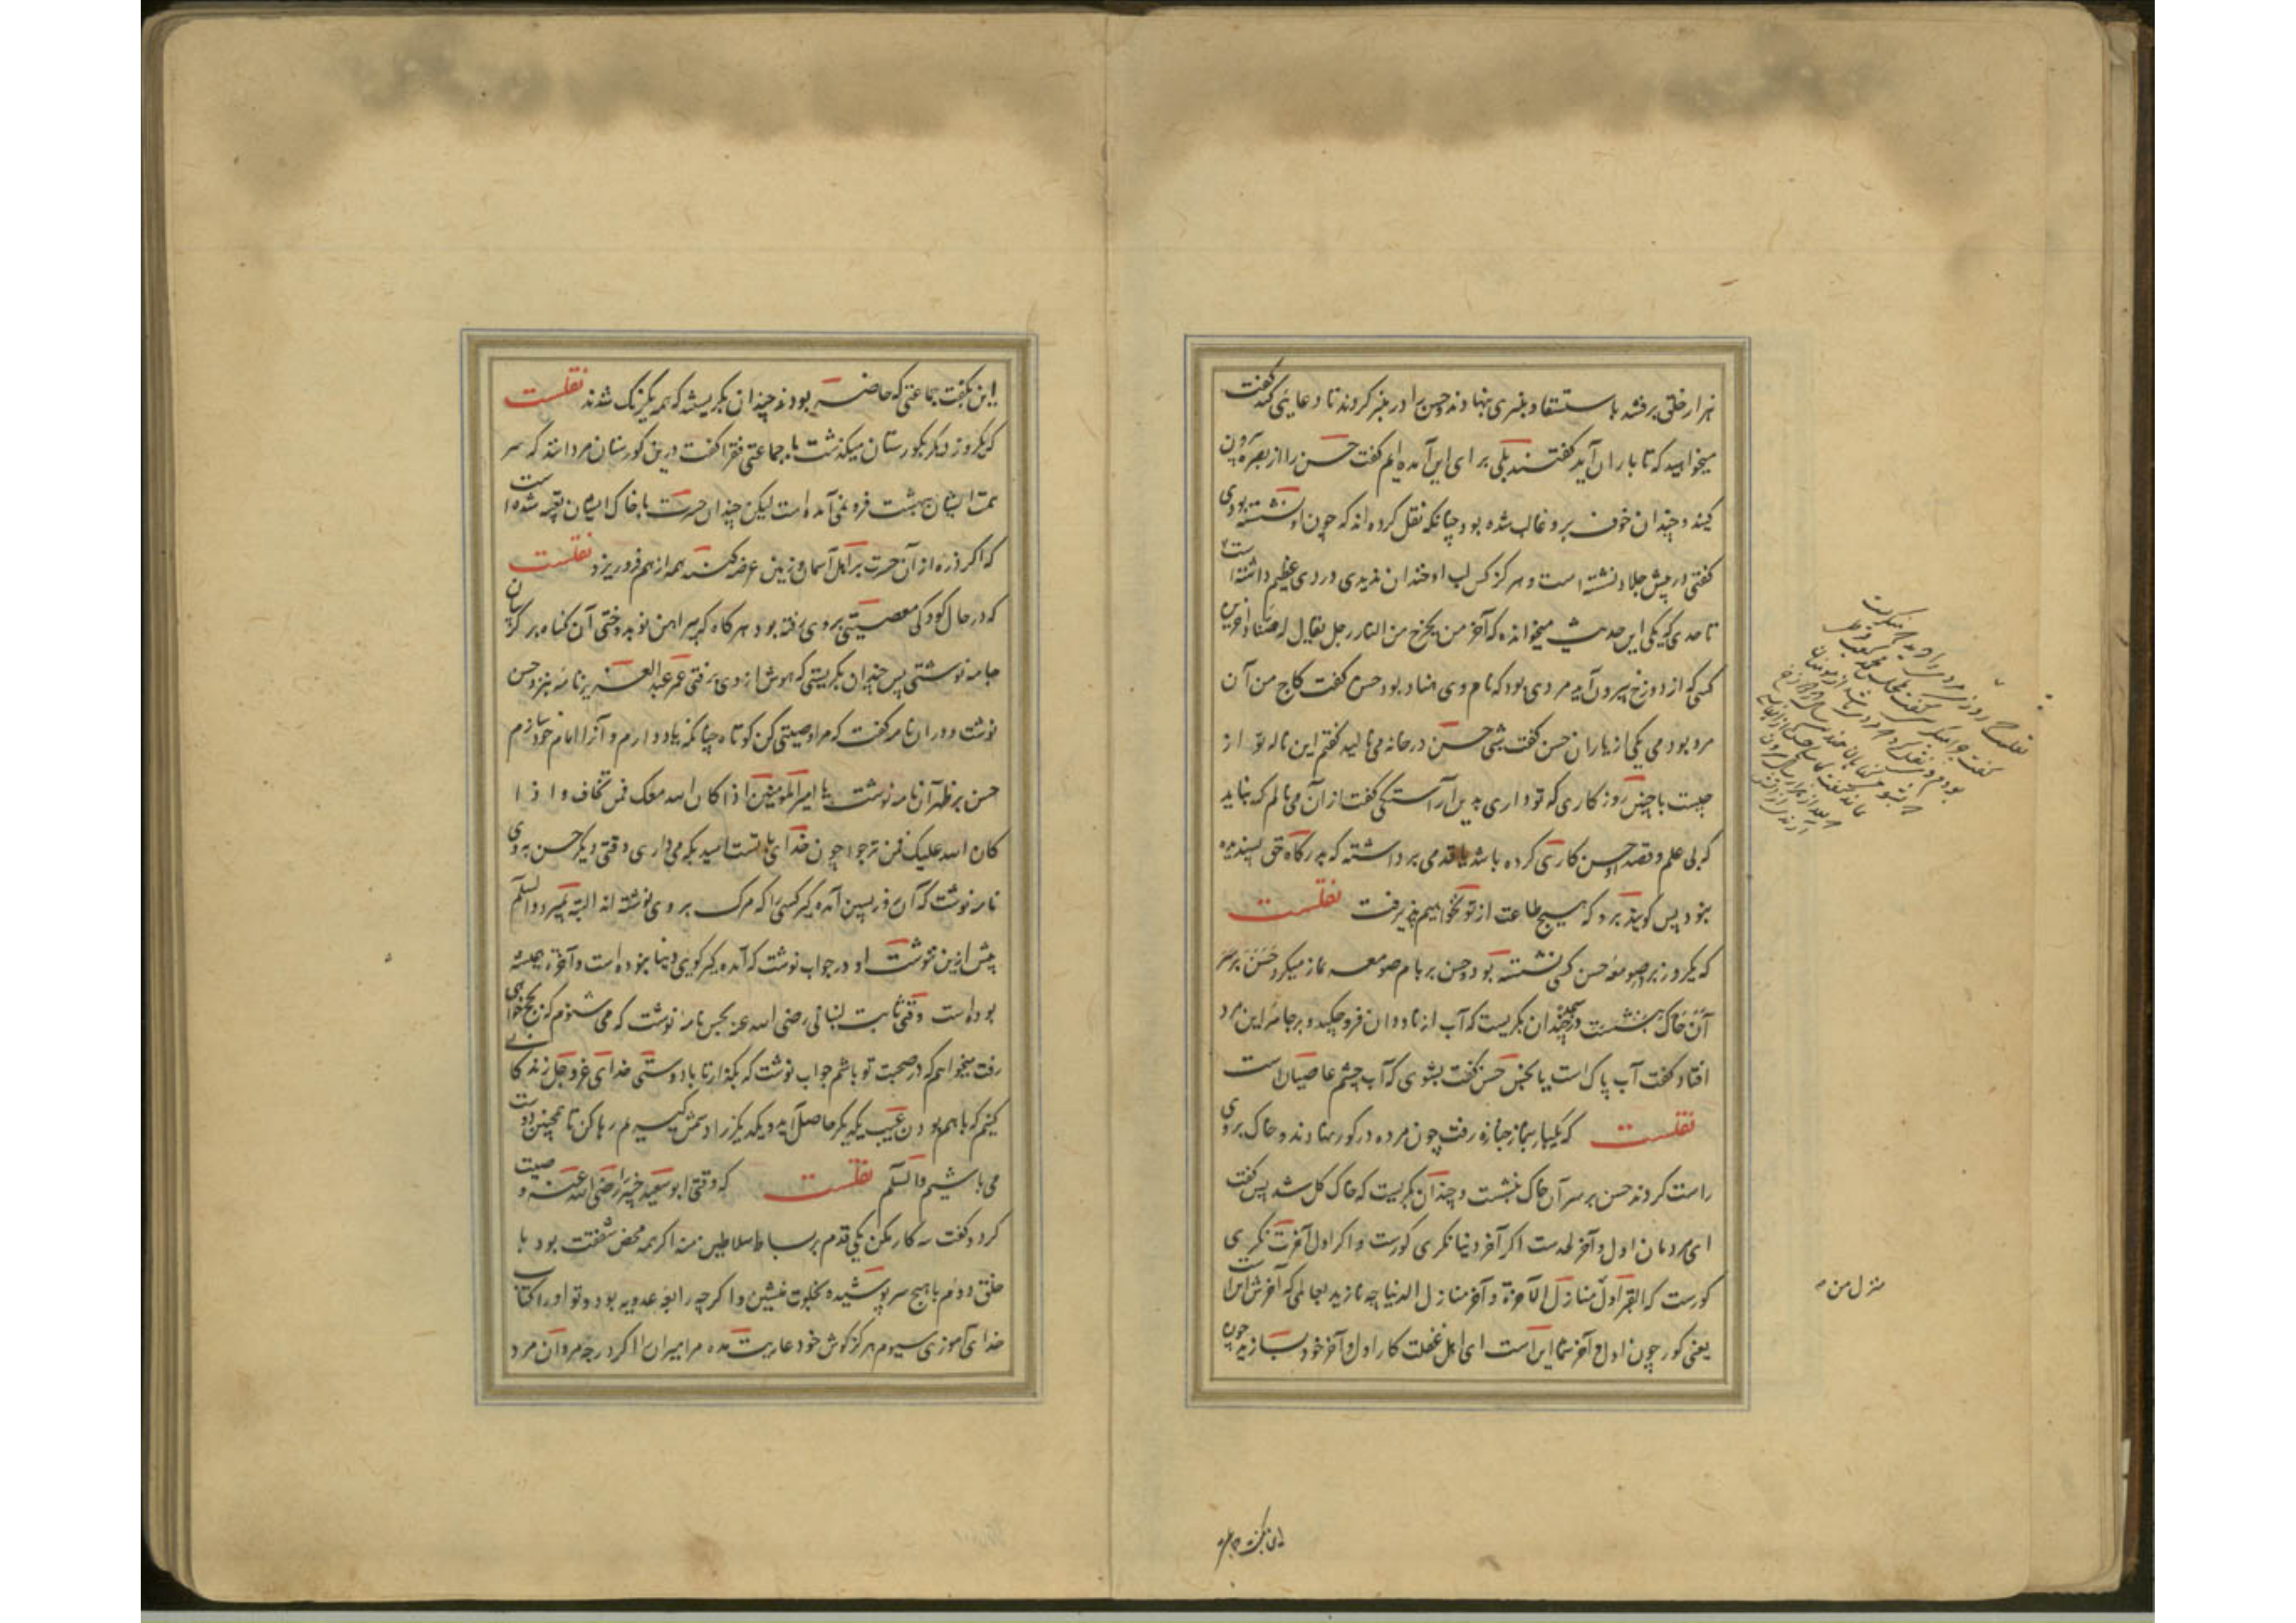 هزار خلق برفتند باستسقا و منبری بنهادند و حسن را در منبر کردند تا دعایی کند گفت
میخواهید که تا باران آید گفتند بلی برای این آمده ایم گفت حسن را از بصره بیرون
کنید و چندان خوف برو غالب شده بود چنانکه نقل کرده اند که چون او نشسته بودی
گفتی در پیش جلاد نشسته است و هرگز کس لب او خندان ندیدی دردی عظیم داشته است
تا حدی که یکی این حدیث میخوانده که آخر من یخرج من النار رجل یقال له هناد آخرین
کسی که از دوزخ بیرون آید مردی بود که نام وی هناد بود حسن گفت کاج من آن
مرد بودمی یکی از یاران حسن گفت شبی حسن در خانه می نالید گفتم این ناله تو از
چیست با چنین روزگاری که تو داری بدین آراستگی گفت از آن می نالم که نباید
که بی علم و قصد حسن کاری کرده باشد یا قدمی برداشته که بدرگاه حق پسندیده
نبود پس گویند برو که هیچ طاعت از تو نخواهیم پذیرفت نقلست
که یکروز بر در صومعه حسن کسی نشسته بود و حسن بر بام صومعه نماز میکرد حسن بر سر
آن خاک بنشست و چندان بگریست که آب از ناودان فرو چکید و بر جامه این مرد
افتاد گفت آب پاک است یا نجس حسن گفت بشوی که آب چشم عاصیان است
نقلست که یکبار بنماز جنازه رفت چون مرده در گور نهادند و خاک بروی
راست کردند حسن بر سر آن خاک بنشست و چندان بگریست که خاک گل شد پس گفت
ای مردمان اول و آخر لحدست اگر آخر دنیا نگری گورست و اگر اول آخرت نگری
گورست که القبر اول منازل الآخرة و آخر منازل الدنیا چه نازید بعالمی که آخرش اینست
یعنی گور چون اول و آخر شما اینست ای اهل غفلت کار اول و آخر خود بسازید چون
منزل من
این بگفت جماعتی
این بگفت جماعتی که حاضر بودند چندان بگریستند که همه یکرنگ شدند نقلست
که یکروز دیگر بگورستان میگذشت با جماعتی فقرا گفت درین گورستان مردانند که سر
همت ایشان ببهشت فرو نمی آمده است لیکن چندان حسرت با خاک ایشان تعبیه شده است
که اگر ذره از آن حسرت بر اهل آسمان و زمین عرضه کنند همه از هم فرو ریزد نقلست
که در حال کودکی معصیتی بر وی رفته بود هر گاه که پیراهن نو بدوختی آن گناه بر گریبان
جامه نوشتی پس چندان بگریستی که هوش از وی برفتی عمر عبدالعزیز نامه بنزد حسن
نوشت و در آن نامه گفت که مرا وصیتی کن کوتاه چنانکه یاد دارم و آنرا امام خود سازم
حسن بر ظهر آن نامه نوشت یا امیرالمومنین اذا کان الله معک فمن تخاف و اذا
کان الله علیک فمن ترجوا چون خدای با تست امید بکه می داری وقتی دیگر حسن بدو
نامه نوشت که آن روز پسین آمده گیر کسی را که مرگ بر وی نوشته اند البته بمیرد والسلم
پیش ازین ننوشت او در جواب نوشت که آمده گیر گویی دنیا نبوده است و آخرة همیشه
بوده است وقتی ثابت بنانی رضی الله عنه بحسن نامه نوشت که می شنوم که بحج خواهی
رفت میخواهم که در صحبت تو باشم جواب نوشت که بگذار تا با دوستی خدای عز و جل زندگانی
کنیم که با هم بودن عیب یکدیگر حاصل آید و یکدیگر را دشمن گیریم رها کن تا همچنین دوست
می باشیم والسلم نقلست که وقتی ابو سعید خیر را رضی الله عنه وصیت
کرد و گفت سه کار مکن یکی قدم بر بساط سلاطین منه اگر همه محض شفقت بود با
خلق دوم با هیچ سر پوشیده بخلوت منشین و اگر چه رابعه عدویه بود و تو او را کتاب
خدای آموزی سیوم هرگز گوش خود عاریت مده مر امیران را اگر درجه مردان مرد